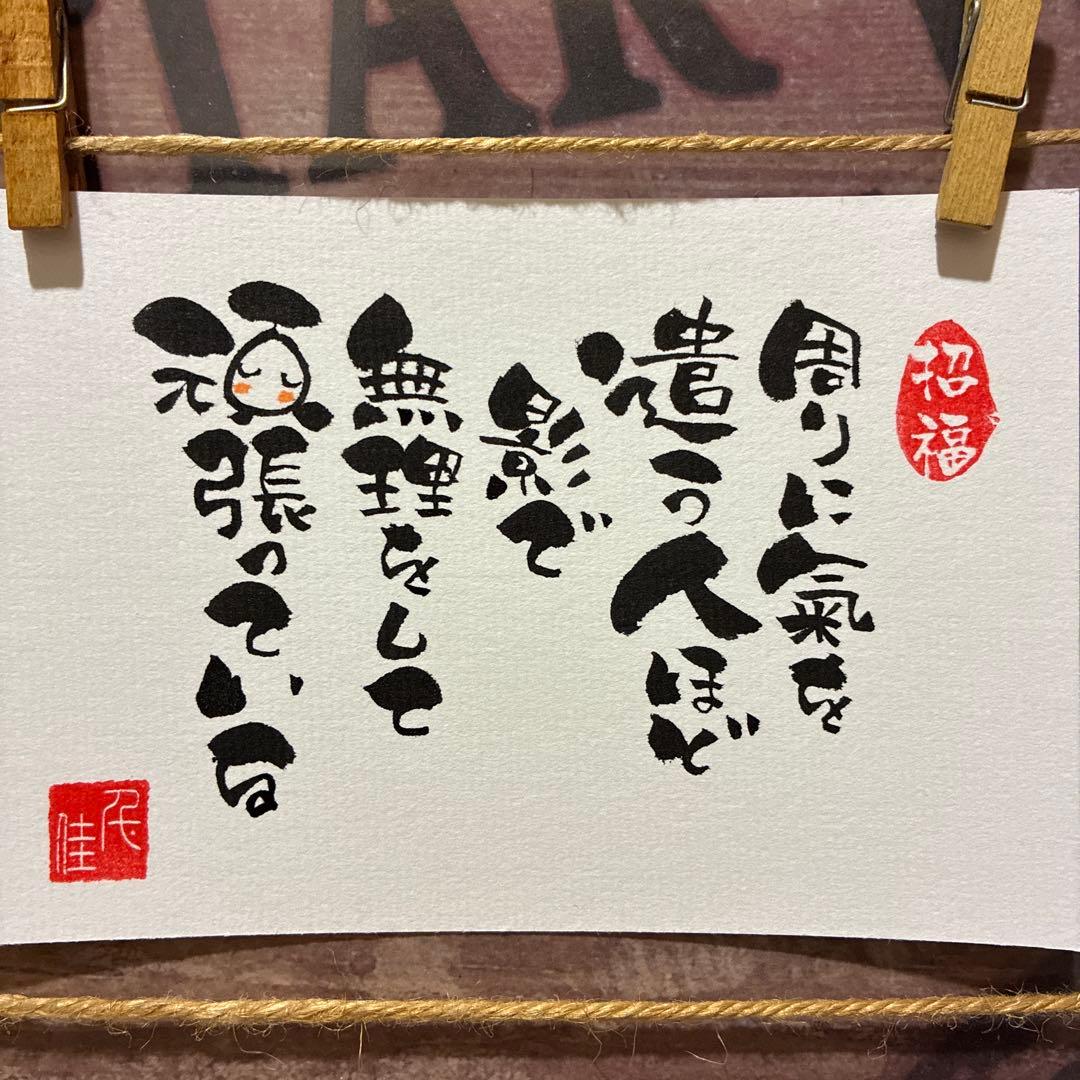 招福
周りに氣を
遣う人ほど
影で
無理をして
頑張っている